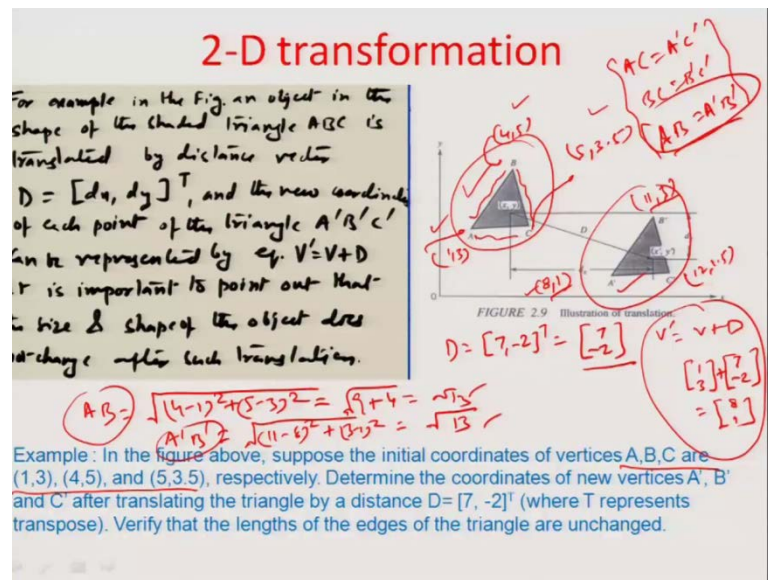 2-D transformation
For example in the Fig. an object in the
shape of the shaded triangle ABC is
translated by distance vector
D = [dx, dy]ᵀ, and the new coordinates
of each point of the triangle A'B'C'
can be represented by eq. V'=V+D
It is important to point out that
size & shape of the object does
not change after such translation.
AC = A'C'
BC = B'C'
AB = A'B'
(4,5)
(5,3.5)
y
B
(x, y)
A
C
(1,3)
D
(11,3)
B'
(x', y')
(12,1.5)
(8,1)
A'
C'
0
x
FIGURE 2.9 Illustration of translation.
D = [7,-2]ᵀ = [7 -2]
V' = V+D
[1 3] + [7 -2]
= [8 1]
AB = √(4-1)²+(5-3)² = √9+4 = √13
A'B' = √(11-8)²+(3-1)² = √13
Example : In the figure above, suppose the initial coordinates of vertices A,B,C are
(1,3), (4,5), and (5,3.5), respectively. Determine the coordinates of new vertices A', B'
and C' after translating the triangle by a distance D= [7, -2]ᵀ (where T represents
transpose). Verify that the lengths of the edges of the triangle are unchanged.